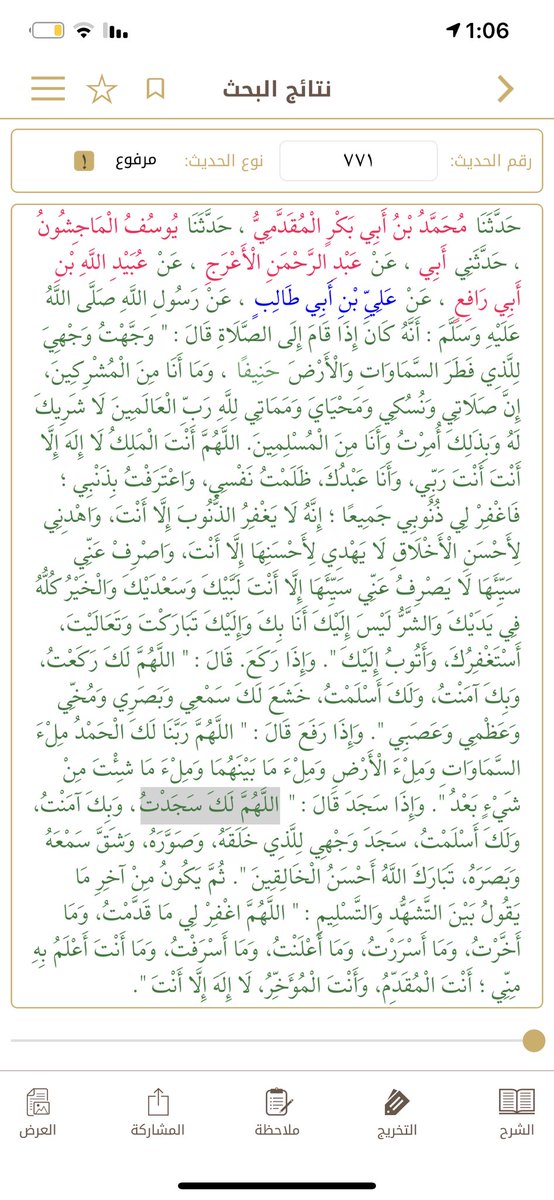 1:06
نتائج البحث
رقم الحديث: ٧٧١ نوع الحديث: مرفوع
حَدَّثَنَا مُحَمَّدُ بْنُ أَبِي بَكْرٍ الْمُقَدَّمِيُّ ، حَدَّثَنَا يُوسُفُ الْمَاجِشُونُ
، حَدَّثَنِي أَبِي ، عَنْ عَبْدِ الرَّحْمَنِ الْأَعْرَجِ ، عَنْ عُبَيْدِ اللَّهِ بْنِ
أَبِي رَافِعٍ ، عَنْ عَلِيِّ بْنِ أَبِي طَالِبٍ ، عَنْ رَسُولِ اللَّهِ صَلَّى اللَّهُ
عَلَيْهِ وَسَلَّمَ : أَنَّهُ كَانَ إِذَا قَامَ إِلَى الصَّلَاةِ قَالَ : " وَجَّهْتُ وَجْهِيَ
لِلَّذِي فَطَرَ السَّمَاوَاتِ وَالْأَرْضَ حَنِيفًا ، وَمَا أَنَا مِنَ الْمُشْرِكِينَ،
إِنَّ صَلَاتِي وَنُسُكِي وَمَحْيَايَ وَمَمَاتِي لِلَّهِ رَبِّ الْعَالَمِينَ لَا شَرِيكَ
لَهُ وَبِذَلِكَ أُمِرْتُ وَأَنَا مِنَ الْمُسْلِمِينَ. اللَّهُمَّ أَنْتَ الْمَلِكُ لَا إِلَهَ إِلَّا
أَنْتَ أَنْتَ رَبِّي، وَأَنَا عَبْدُكَ، ظَلَمْتُ نَفْسِي، وَاعْتَرَفْتُ بِذَنْبِي ؛
فَاغْفِرْ لِي ذُنُوبِي جَمِيعًا ؛ إِنَّهُ لَا يَغْفِرُ الذُّنُوبَ إِلَّا أَنْتَ، وَاهْدِنِي
لِأَحْسَنِ الْأَخْلَاقِ لَا يَهْدِي لِأَحْسَنِهَا إِلَّا أَنْتَ، وَاصْرِفْ عَنِّي
سَيِّئَهَا لَا يَصْرِفُ عَنِّي سَيِّئَهَا إِلَّا أَنْتَ لَبَّيْكَ وَسَعْدَيْكَ وَالْخَيْرُ كُلُّهُ
فِي يَدَيْكَ وَالشَّرُّ لَيْسَ إِلَيْكَ أَنَا بِكَ وَإِلَيْكَ تَبَارَكْتَ وَتَعَالَيْتَ،
أَسْتَغْفِرُكَ، وَأَتُوبُ إِلَيْكَ ". وَإِذَا رَكَعَ. قَالَ : " اللَّهُمَّ لَكَ رَكَعْتُ،
وَبِكَ آمَنْتُ، وَلَكَ أَسْلَمْتُ، خَشَعَ لَكَ سَمْعِي وَبَصَرِي وَمُخِّي
وَعَظْمِي وَعَصَبِي ". وَإِذَا رَفَعَ قَالَ : " اللَّهُمَّ رَبَّنَا لَكَ الْحَمْدُ مِلْءَ
السَّمَاوَاتِ وَمِلْءَ الْأَرْضِ وَمِلْءَ مَا بَيْنَهُمَا وَمِلْءَ مَا شِئْتَ مِنْ
شَيْءٍ بَعْدُ ". وَإِذَا سَجَدَ قَالَ : " اللَّهُمَّ لَكَ سَجَدْتُ ، وَبِكَ آمَنْتُ،
وَلَكَ أَسْلَمْتُ، سَجَدَ وَجْهِي لِلَّذِي خَلَقَهُ، وَصَوَّرَهُ، وَشَقَّ سَمْعَهُ
وَبَصَرَهُ، تَبَارَكَ اللَّهُ أَحْسَنُ الْخَالِقِينَ ". ثُمَّ يَكُونُ مِنْ آخِرِ مَا
يَقُولُ بَيْنَ التَّشَهُّدِ وَالتَّسْلِيمِ : " اللَّهُمَّ اغْفِرْ لِي مَا قَدَّمْتُ، وَمَا
أَخَّرْتُ، وَمَا أَسْرَرْتُ، وَمَا أَعْلَنْتُ، وَمَا أَسْرَفْتُ، وَمَا أَنْتَ أَعْلَمُ بِهِ
مِنِّي ؛ أَنْتَ الْمُقَدِّمُ، وَأَنْتَ الْمُؤَخِّرُ، لَا إِلَهَ إِلَّا أَنْتَ ".
الشرح التخريج ملاحظة المشاركة العرض